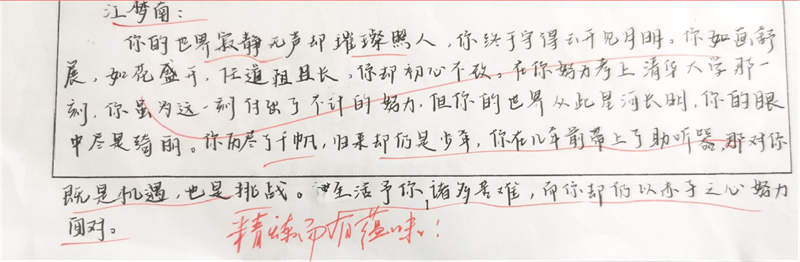 江梦南：
你的世界寂静无声却璀璨照人，你终于守得云开见月明。你如画舒
展，如花盛开，任道阻且长，你却初心不改。在你努力考上清华大学那一
刻，你虽为这一刻付出了不计的努力，但你的世界从此星河长明，你的眼
中尽是晴朗。你历尽了千帆，归来却仍是少年，你在几年前带上了助听器，那对你
既是机遇，也是挑战。生活予你诸多苦难，而你却仍以赤子之心努力
面对。
精炼而有蕴味！